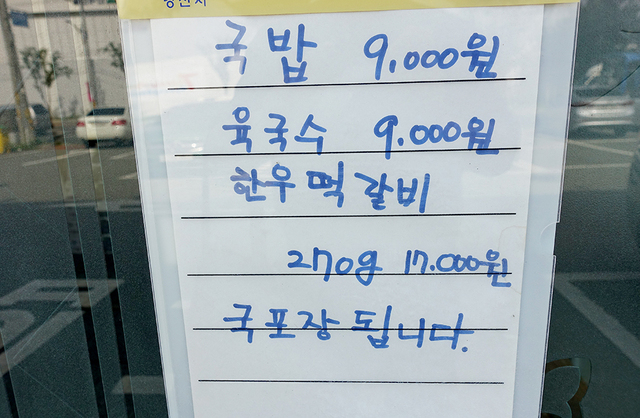 국밥 9,000원
육국수 9.000원
한우떡갈비
270g 17.000원
국포장됩니다.